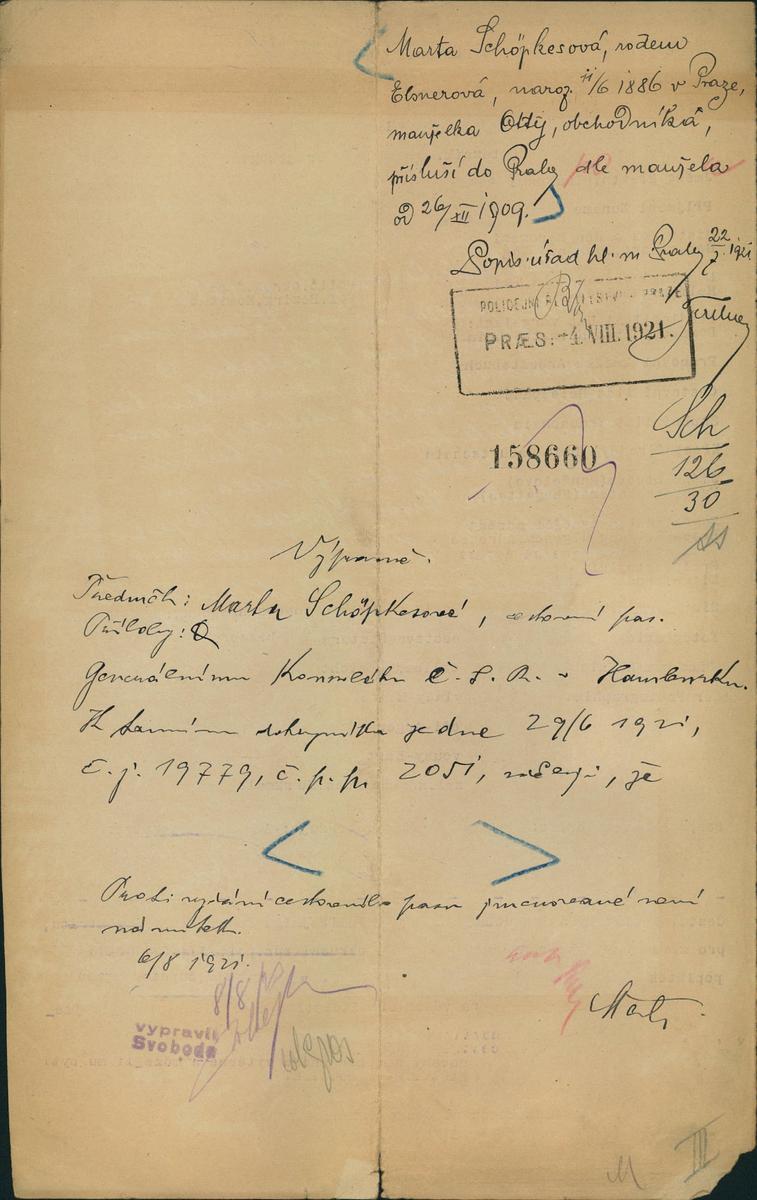 Marta Schöpkesová, rodem
Elsnerová, naroz. 11/6 1886 v Praze,
manželka Otty, obchodníka,
přísluší do Prahy dle manžela
od 26/XII 1909.
Popis. úřad hl. m. Prahy 22/7. 1921
POLICEJNÍ ŘEDITELSTVÍ V PRAZE
PRÆS: -4. VIII. 1921.
158660
Sch
126
30
Výpravně.
Předmět: Marta Schöpkesová, cestovní pas.
Přílohy: 0
Generálnímu Konsulátu Č. S. R. v Hamburku.
K tamnímu dotazníku ze dne 29/6 1921,
č. j. 19779, č. p. pr 2051, sděluji, že
Proti vydání cestovního pasu jmenované není
námitek.
6/8 1921.
8/8
vypravil
Svoboda
III
M